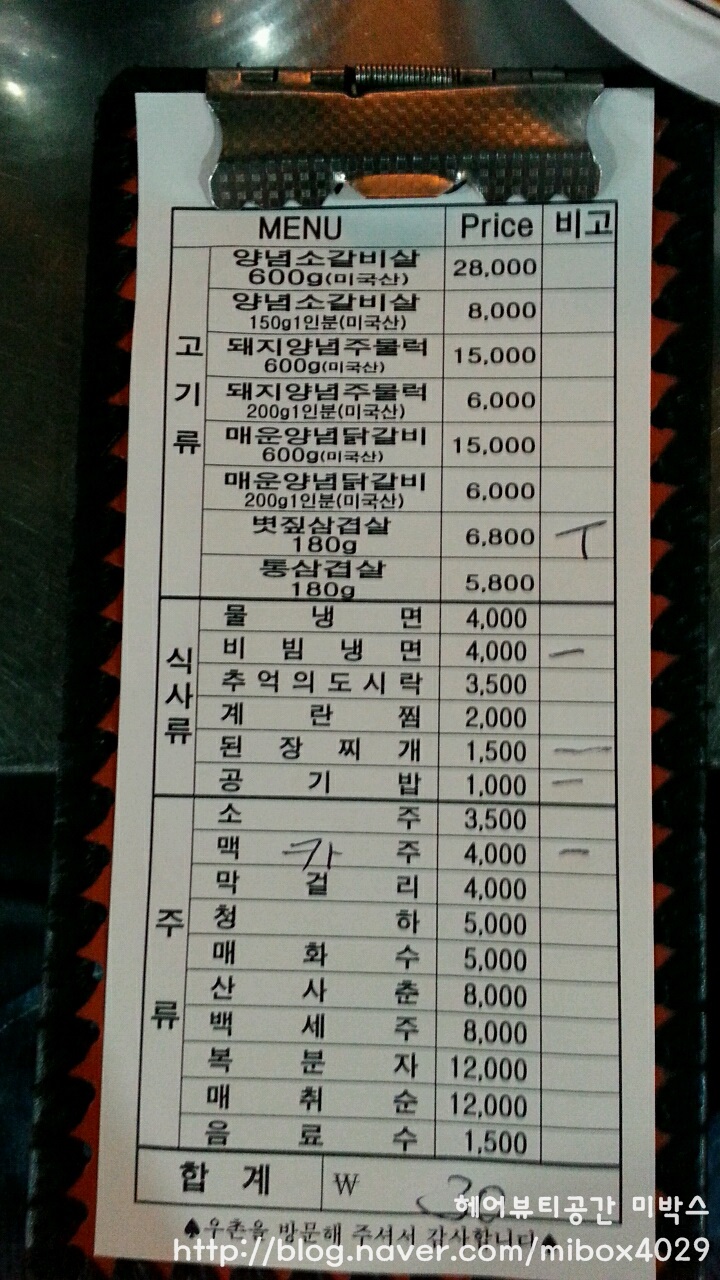 MENU Price 비고
고기류
양념소갈비살
600g(미국산) 28,000
양념소갈비살
150g1인분(미국산) 8,000
돼지양념주물럭
600g(미국산) 15,000
돼지양념주물럭
200g1인분(미국산) 6,000
매운양념닭갈비
600g(미국산) 15,000
매운양념닭갈비
200g1인분(미국산) 6,000
볏짚삼겹살
180g 6,800 ㅜ
통삼겹살
180g 5,800
식사류
물냉면 4,000
비빔냉면 4,000 ㅡ
추억의도시락 3,500
계란찜 2,000
된장찌개 1,500 ㅡ
공기밥 1,000 ㅡ
주류
소주 3,500
맥주 카 4,000 ㅡ
막걸리 4,000
청하 5,000
매화수 5,000
산사춘 8,000
백세주 8,000
복분자 12,000
매취순 12,000
음료수 1,500
합계 ₩ 30
♠우촌을 방문해 주셔서 감사합니다♠
헤어뷰티공간 미박스
http://blog.naver.com/mibox4029